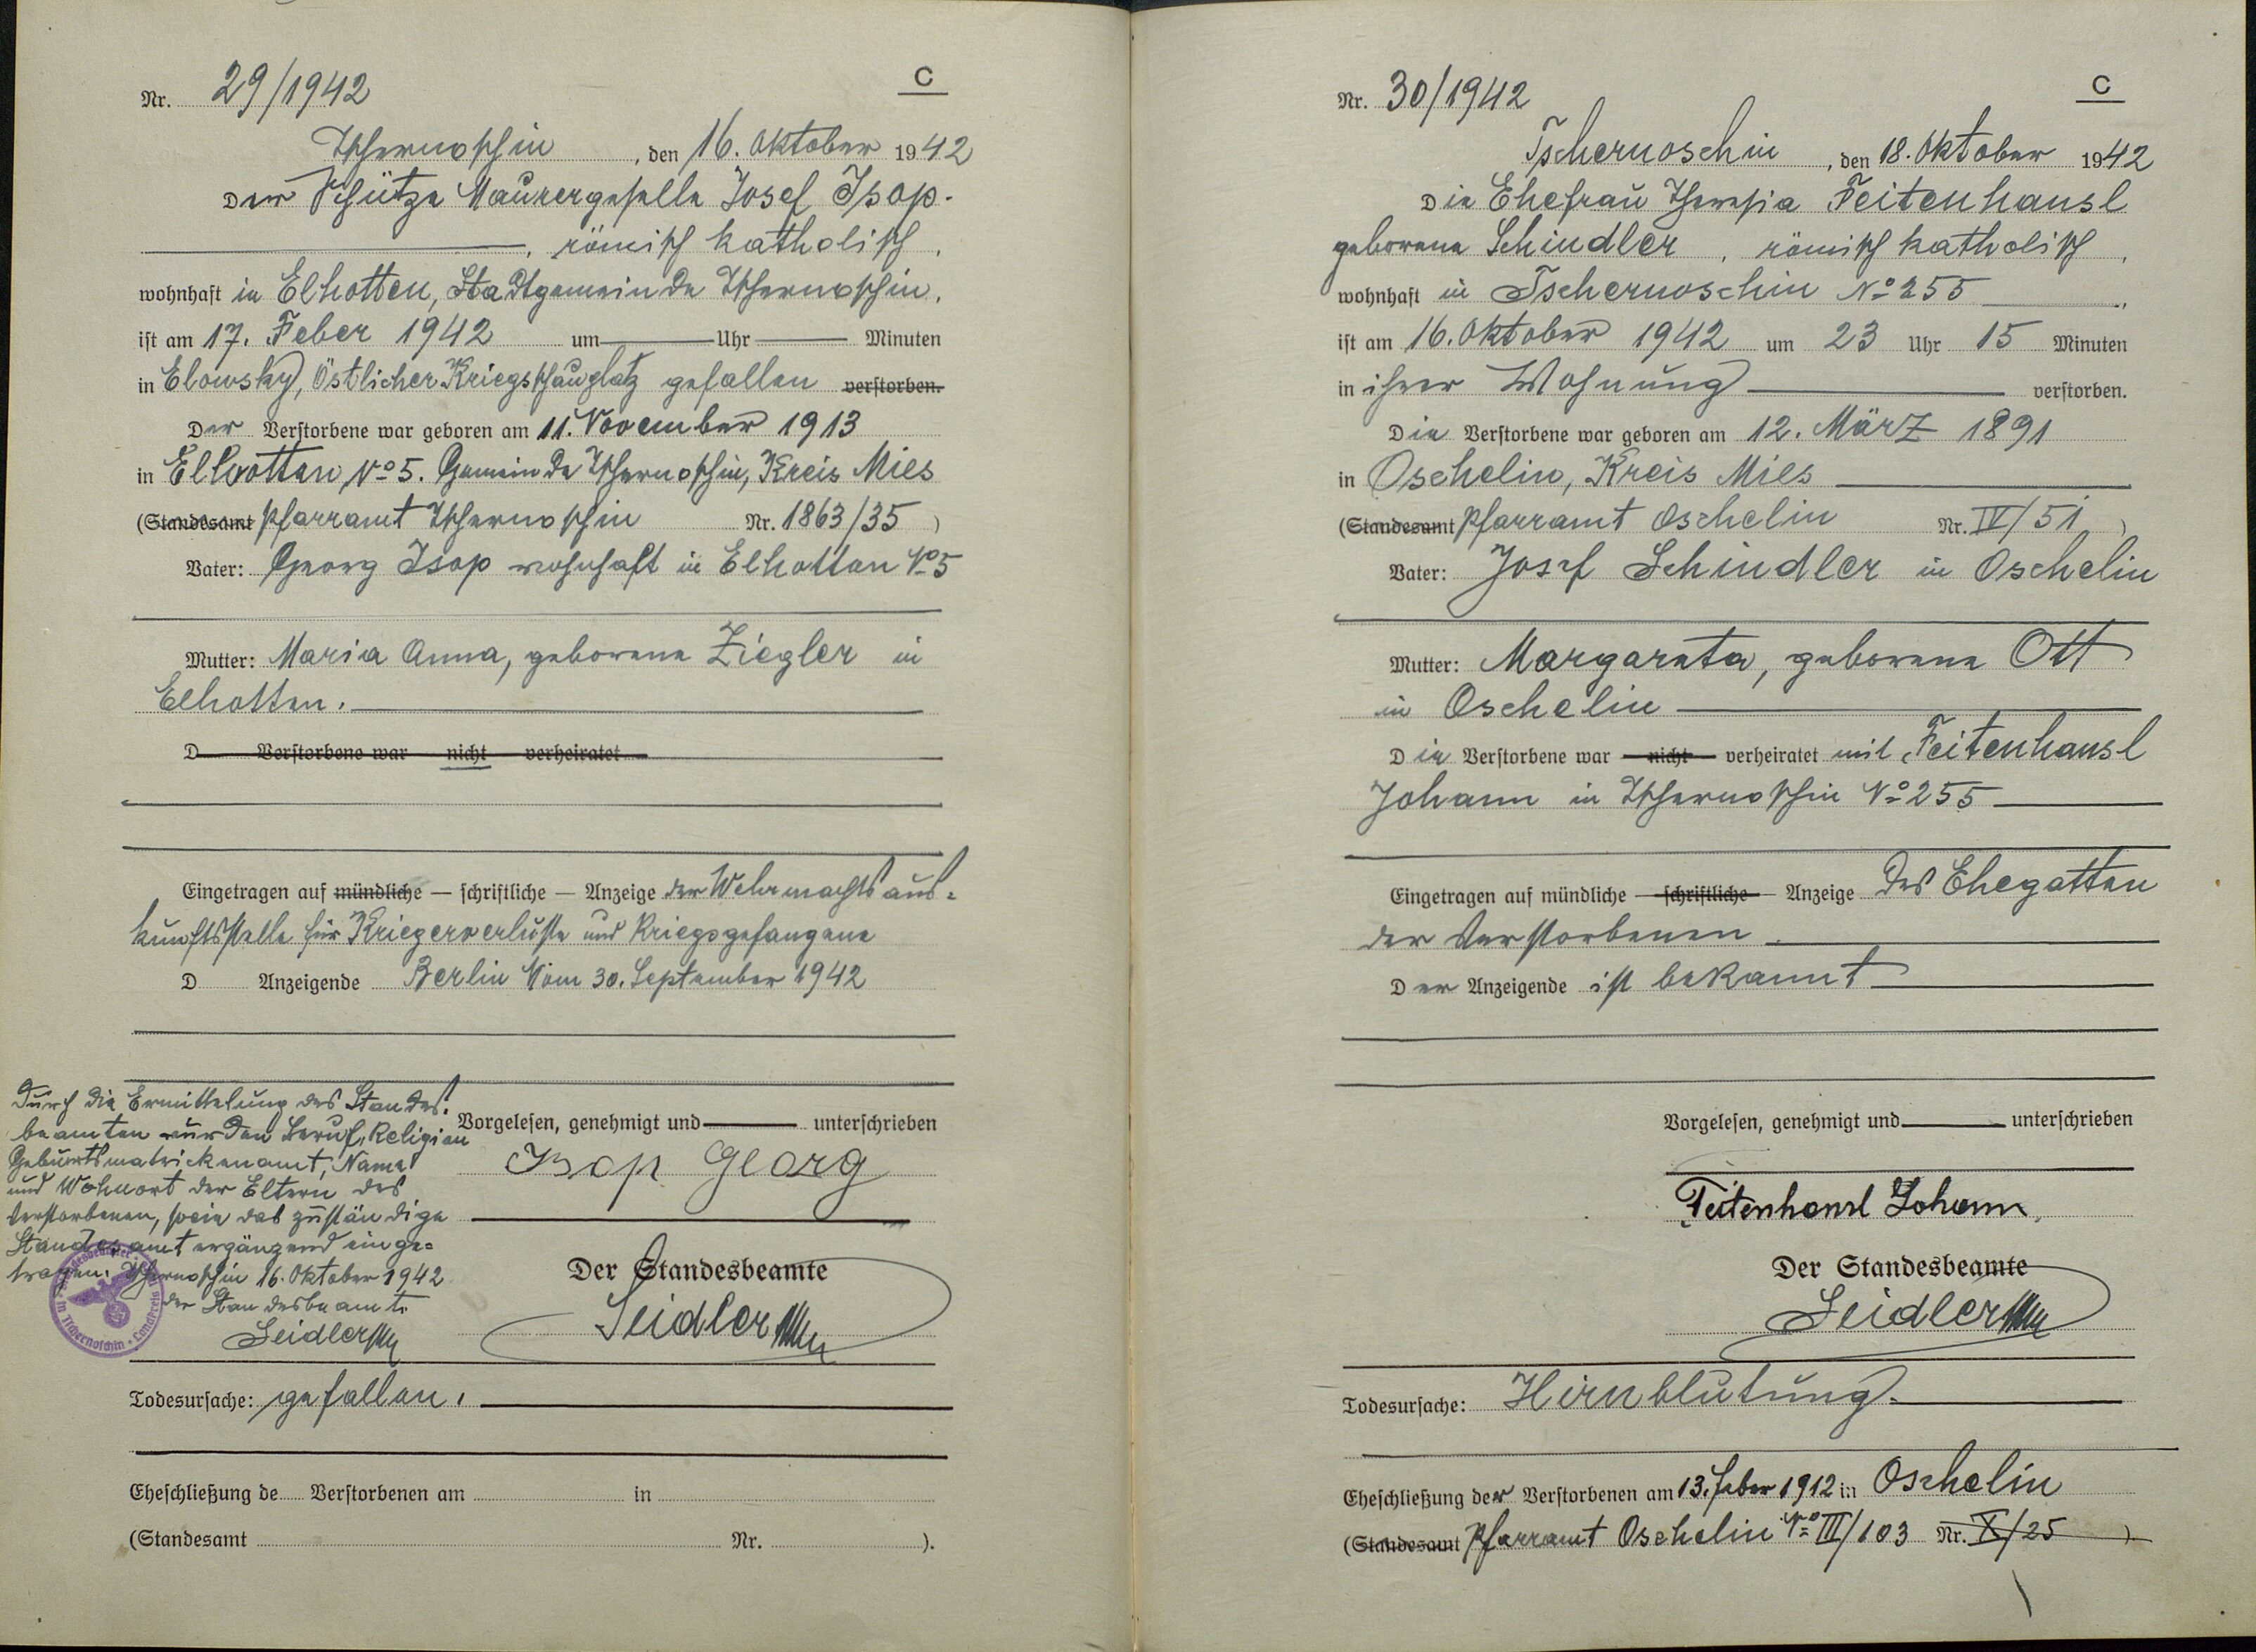 Nr. 29/1942
C
Tschernoschin, den 16. Oktober 1942
Der Schütze Maurergeselle Josef Isop.
, römisch katholisch,
wohnhaft in Elhotten, Stadtgemeinde Tschernoschin,
ist am 17. Feber 1942 um Uhr Minuten
in Elowsky, Östlicher Kriegsschauplatz gefallen verstorben.
Der Verstorbene war geboren am 11. November 1913
in Elhotten No 5. Gemeinde Tschernoschin, Kreis Mies
(Standesamt Pfarramt Tschernoschin Nr. 1863/35)
Vater: Georg Isop wohnhaft in Elhotten No 5
Mutter: Maria Anna, geborene Ziegler in
Elhotten.
D Verstorbene war nicht verheiratet
Eingetragen auf mündliche — schriftliche — Anzeige der Wehrmachtsaus-
kunftsstelle für Kriegerverluste und Kriegsgefangene
D Anzeigende Berlin Vom 30. September 1942
Durch die Ermittelung des Standes-
beamten wurden Beruf, Religion
Geburtsmatrickenamt, Name
und Wohnort der Eltern des
Verstorbenen, sowie das zuständige
Standesamt ergänzend einge-
tragen. Tschernoschin 16. Oktober 1942
der Standesbeamte
Seidler
in Tschernoschin · Landkreis
Vorgelesen, genehmigt und unterschrieben
Isop Georg
Der Standesbeamte
Seidler
Todesursache: gefallen.
Eheschließung de Verstorbenen am in
(Standesamt Nr. ).
Nr. 30/1942
C
Tschernoschin, den 18. Oktober 1942
Die Ehefrau Theresia Feitenhansl
geborene Schindler, römisch katholisch,
wohnhaft in Tschernoschin No 255,
ist am 16. Oktober 1942 um 23 Uhr 15 Minuten
in ihrer Wohnung verstorben.
Die Verstorbene war geboren am 12. März 1891
in Oschelin, Kreis Mies
(Standesamt Pfarramt Oschelin Nr. IV/51)
Vater: Josef Schindler in Oschelin
Mutter: Margareta, geborene Ott
in Oschelin
Die Verstorbene war nicht verheiratet mit Feitenhansl
Johann in Tschernoschin No 255
Eingetragen auf mündliche — schriftliche — Anzeige des Ehegatten
der Verstorbenen
Der Anzeigende ist bekannt
Vorgelesen, genehmigt und unterschrieben
Feitenhansl Johann.
Der Standesbeamte
Seidler
Todesursache: Hirnblutung.
Eheschließung der Verstorbenen am 13. Feber 1912 in Oschelin
(Standesamt Pfarramt Oschelin No III/103 Nr. X/25)